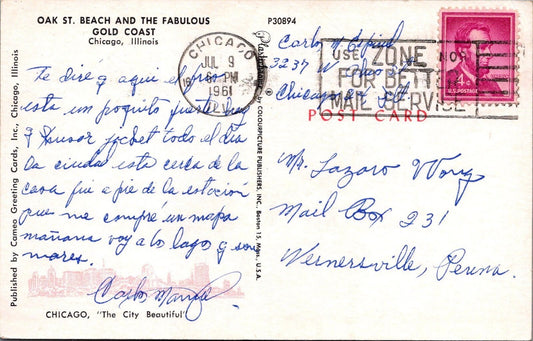 OAK ST. BEACH AND THE FABULOUS
GOLD COAST
Chicago, Illinois
P30894
Te diré q aqui el
esta un poquito
q todo el dia
la ciudad esta cerca de la
casa fui a pie de la estación
que me compré un mapa
mañana voy a los lagos y son
mares.
Carlos
CHICAGO, "The City Beautiful"
Published by Cameo Greeting Cards, Inc., Chicago, Illinois
Plastichrome ® BY COLOURPICTURE PUBLISHERS, INC., Boston 15, Mass., U.S.A.
CHICAGO
JUL 9
PM
1961
ILL
USE ZONE NOS.
FOR BETTER
MAIL SERVICE
U.S. POSTAGE
Carlos
3237 W
Chicago
POST CARD
Mr. Lazaro Wong
Mail Box 231
Wernersville, Penna.